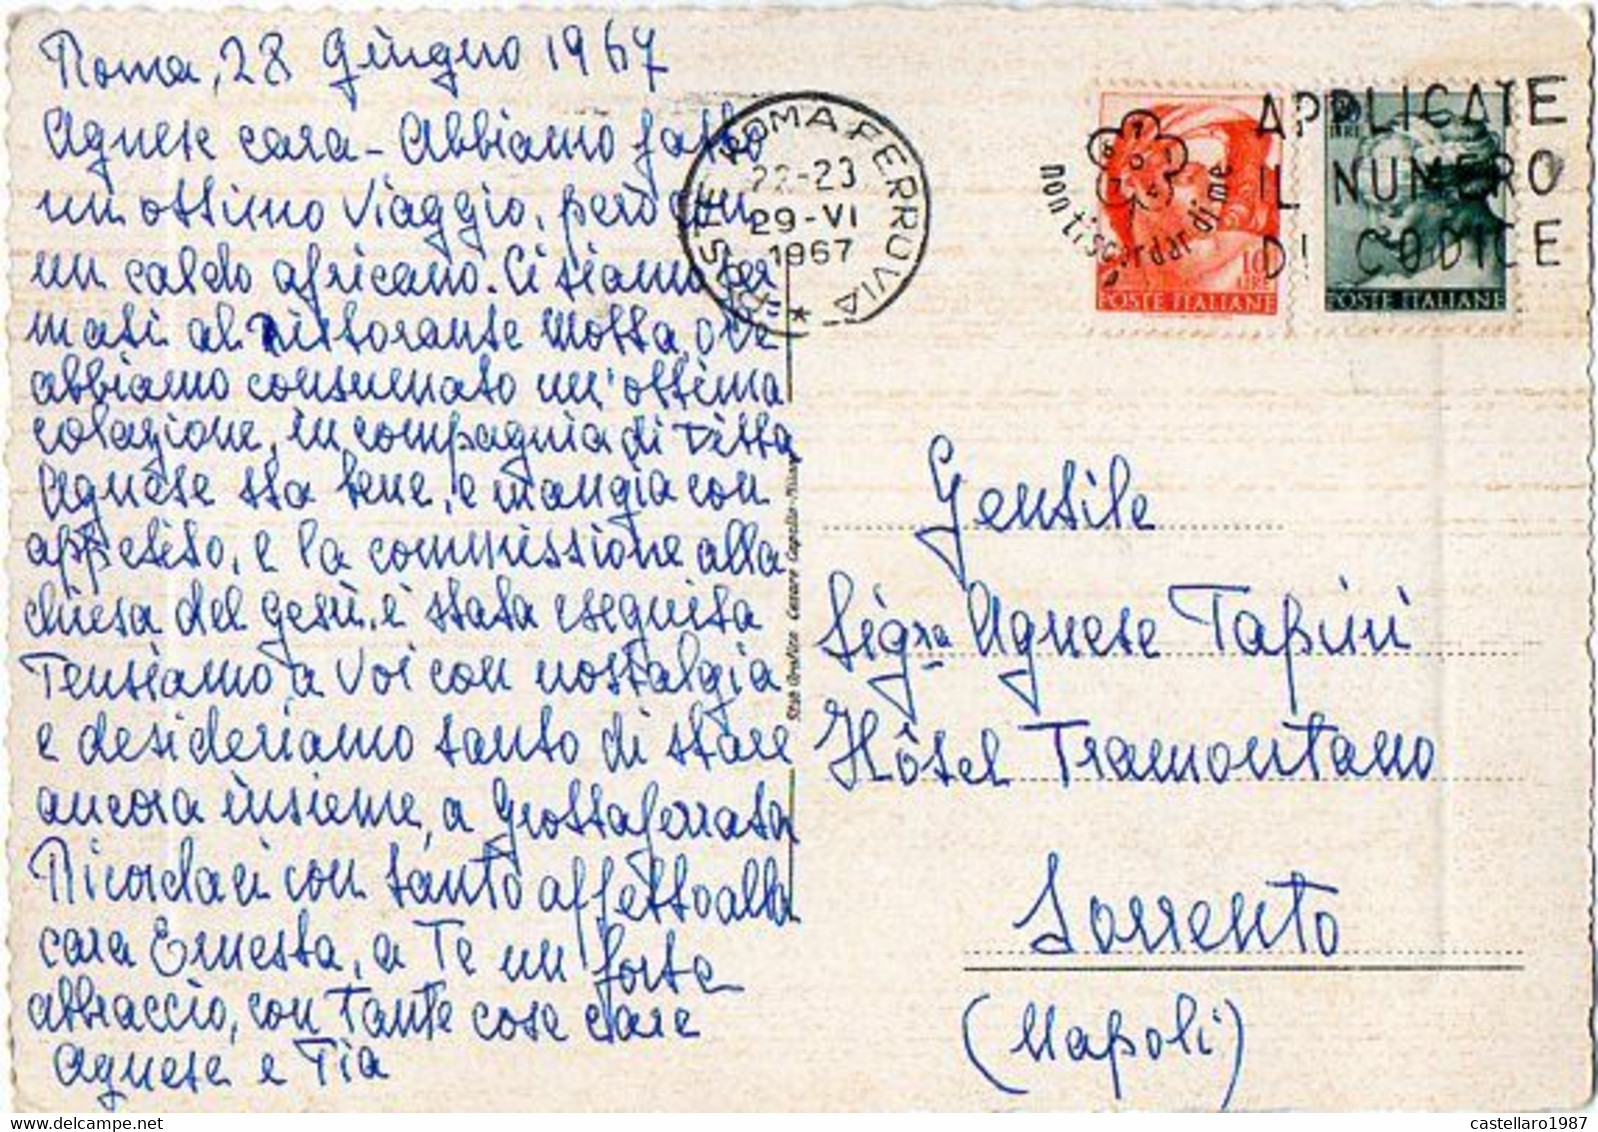 Roma, 28 giugno 1967
Agnese cara - Abbiamo fatto
un ottimo viaggio, però con
un caldo africano. Ci siamo fer
mati al ristorante Motta, ove
abbiamo consumato un'ottima
colazione, in compagnia di Titta
Agnese sta bene, e mangia con
appetito, e la commissione alla
chiesa del Gesù, è stata eseguita
Pensiamo a Voi con nostalgia
e desideriamo tanto di stare
ancora insieme, a Grottaferrata
Ricordaci con tanto affetto alla
cara Ernesta, a Te un forte
abbraccio, con tante cose care
Agnese e Pia
POSTE ROMA FERROVIA
22-23
29-VI
1967
*
non ti scordar di me
APPLICATE
IL NUMERO
DI CODICE
10
LIRE
POSTE ITALIANE
LIRE
POSTE ITALIANE
Gentile
Sigra Agnese Tapini
Hôtel Tramontano
Sorrento
(Napoli)
Cesare Capello - Milano
castellaro1987